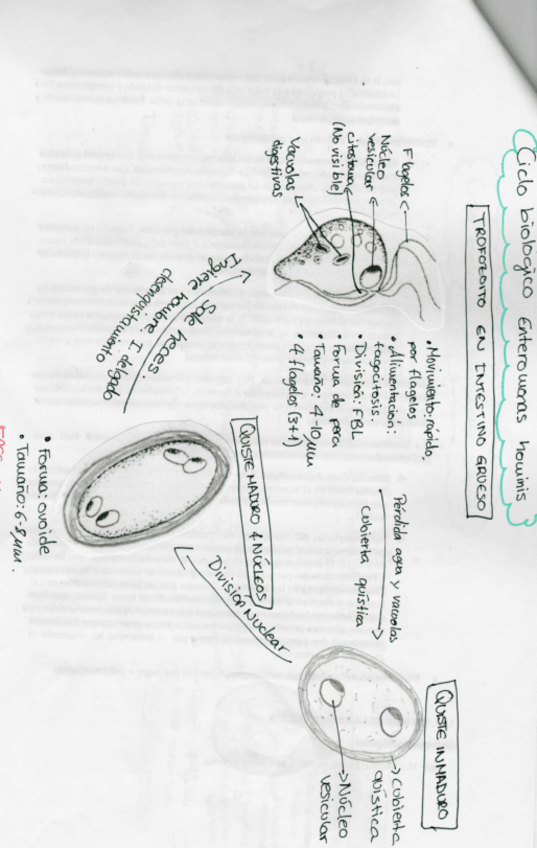 Ciclo biologico Enteromonas hominis
TROFOZOITO EN INTESTINO GRUESO
Flagelos
Núcleo
vesicular
citostoma
(No visible)
Vacuolas
digestivas
• Movimiento: rápido,
por flagelos
• Alimentación:
fagocitosis.
• División: FBL
• Forma de pera
• Tamaño: 4-10 µm
• 4 flagelos (3+1)
Pérdida agua y vacuolas
cubierta quística
QUISTE INMADURO
cubierta
quística
Núcleo
vesicular
División Nuclear
QUISTE MADURO 4 NÚCLEOS
• Forma: ovoide
• Tamaño: 6-8 µm.
Sale heces.
Ingiere hombre. I. delgado
desenquistamiento